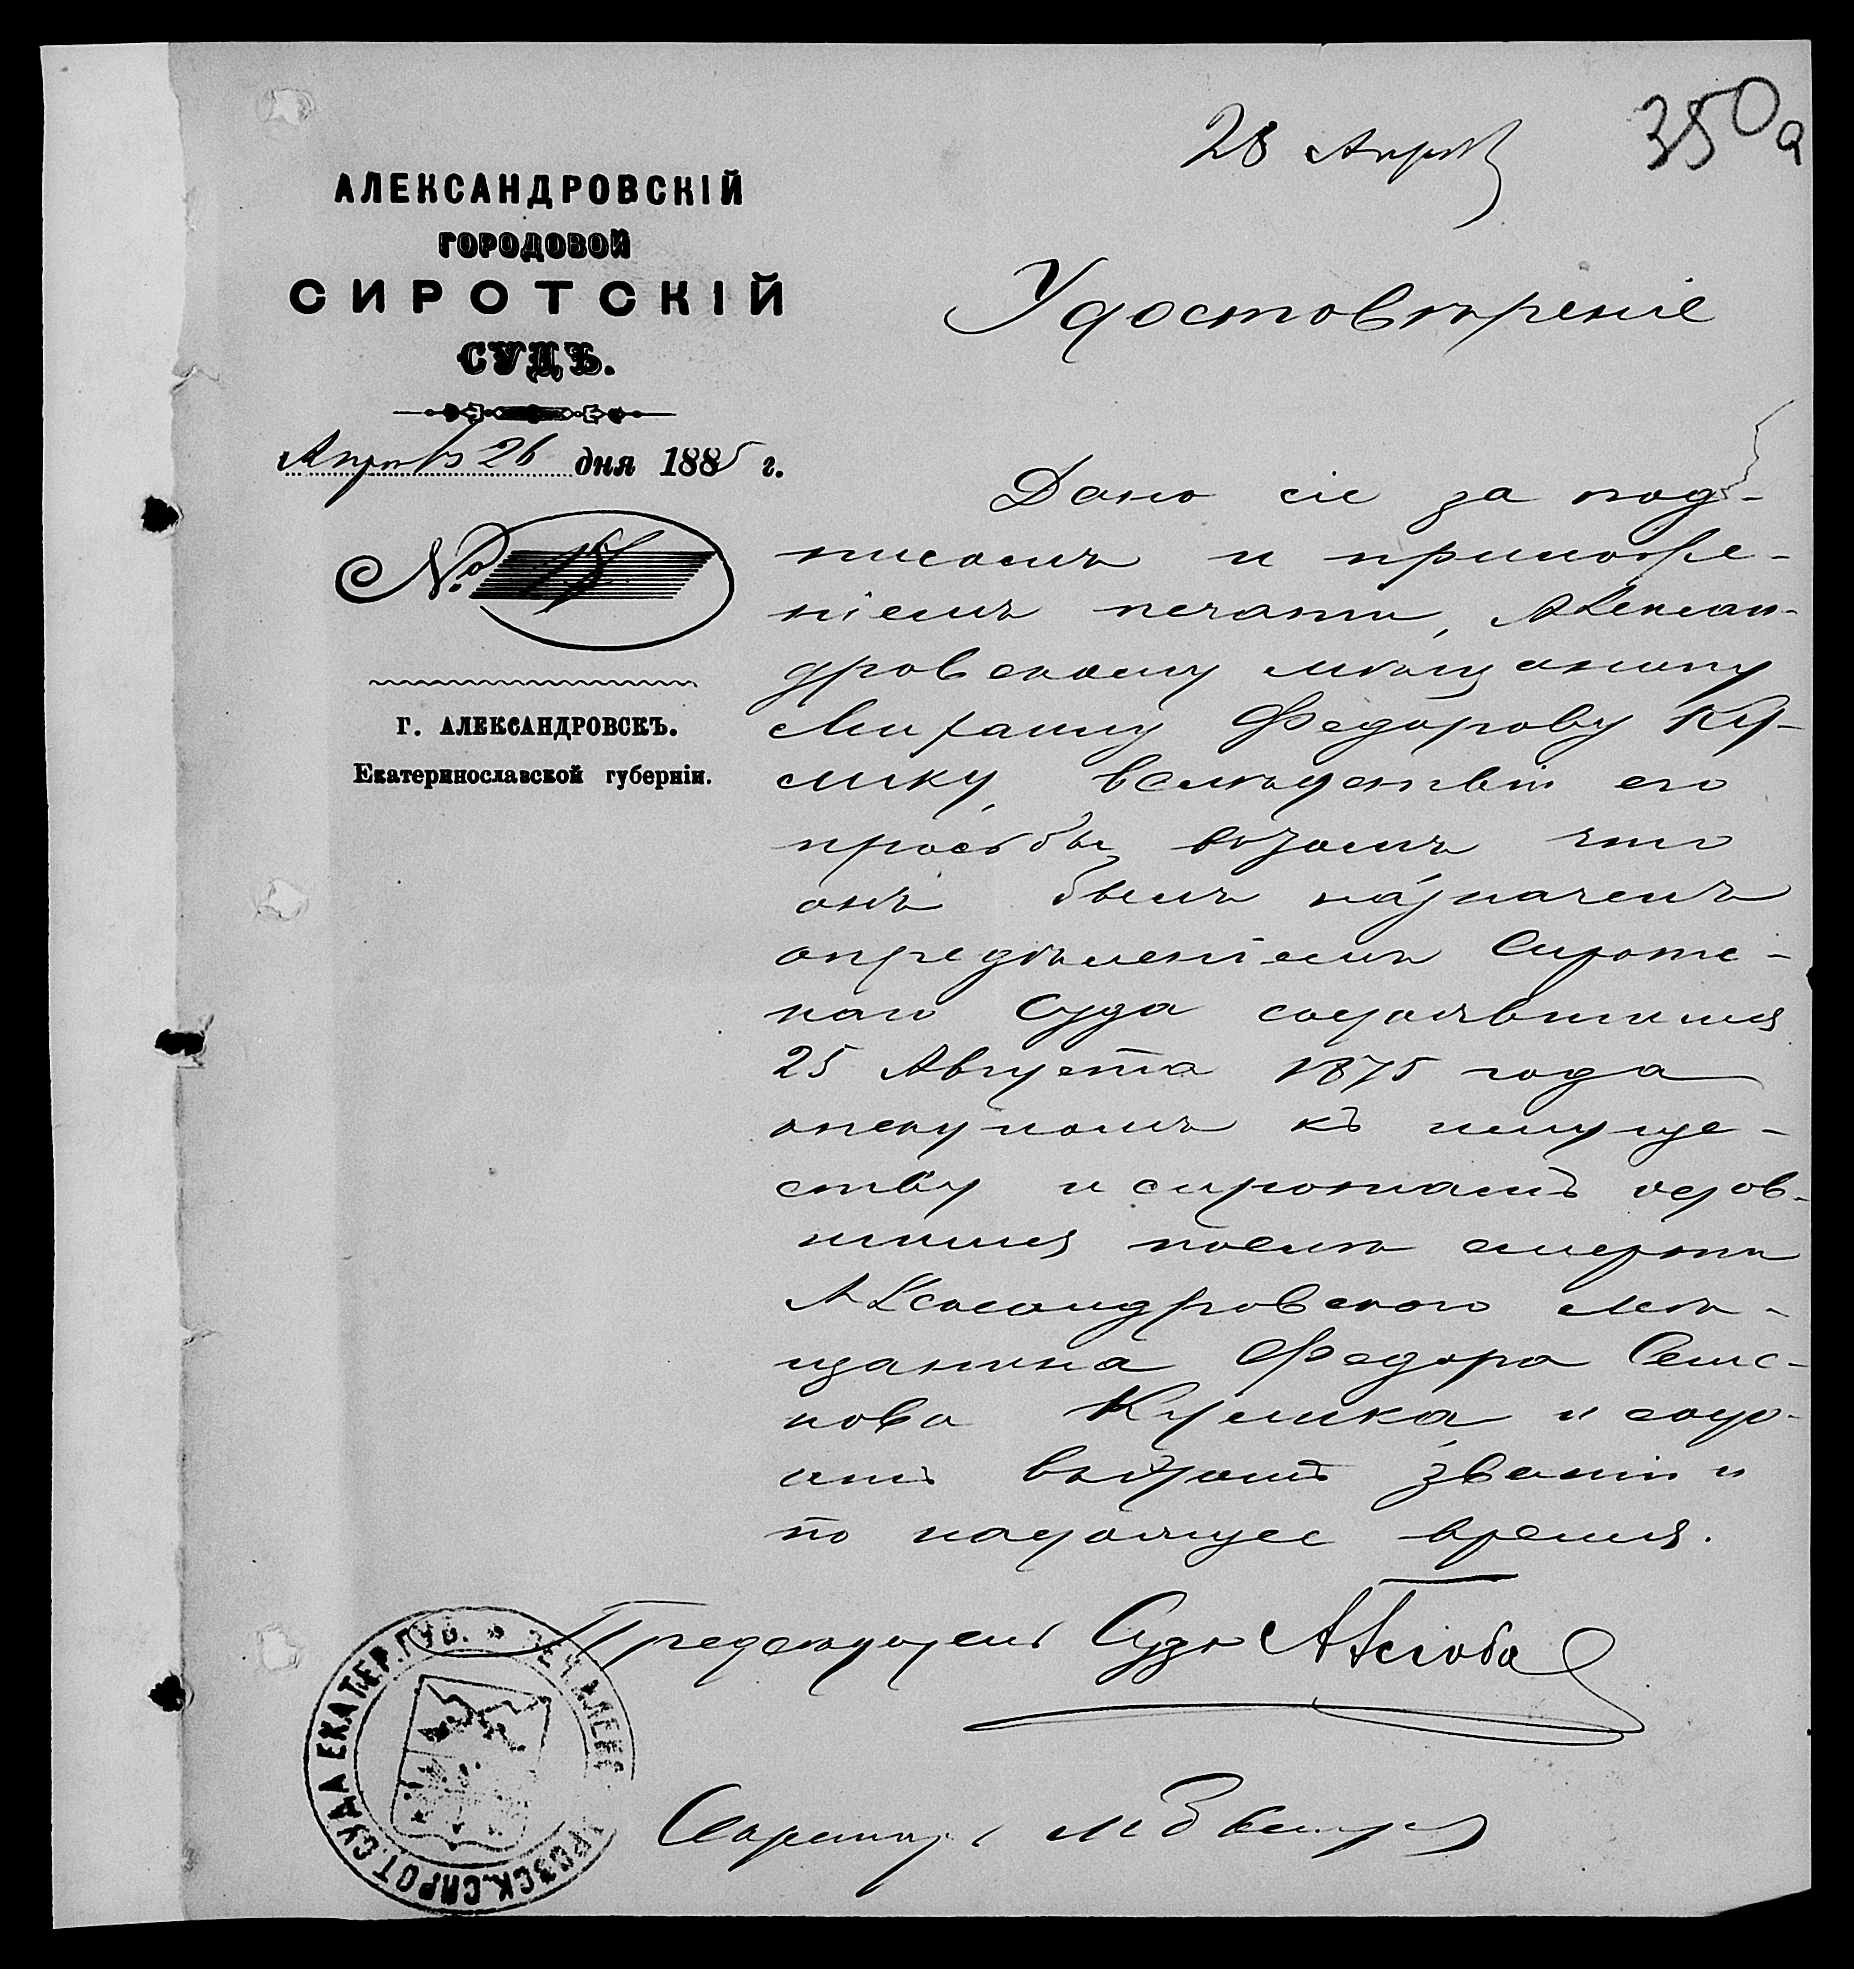 28 Апрѣл
350а
АЛЕКСАНДРОВСКІЙ
ГОРОДОВОЙ
СИРОТСКІЙ
СУДЪ.
Апрѣля 26 дня 1885 г.
№ 18
Г. АЛЕКСАНДРОВСКЪ.
Екатеринославской губерніи.
Удостовѣреніе
Дано сіе за под-
писомъ и приложе-
ніемъ печати, Алексан-
дровскому мѣщанину
Михаилу Федорову Ку-
лику, вслѣдствіи его
просьбы втомъ что
онъ былъ назначенъ
опредѣленіемъ Сиротс-
каго Суда состоявшимся
25 Августа 1875 года
опекуномъ къ имуще-
ству и сиротамъ остав-
шимся послѣ смерти
Александровского мѣ-
щанина Федора Семе-
нова Кулика и состо-
итъ въ этомъ званіи и
по настоящее время.
Предсѣдатель Суда
Секретарь
ПЕЧ. АЛЕКС РОВСК. СИРОТ. СУДА ЕКАТЕР. ГУБ.